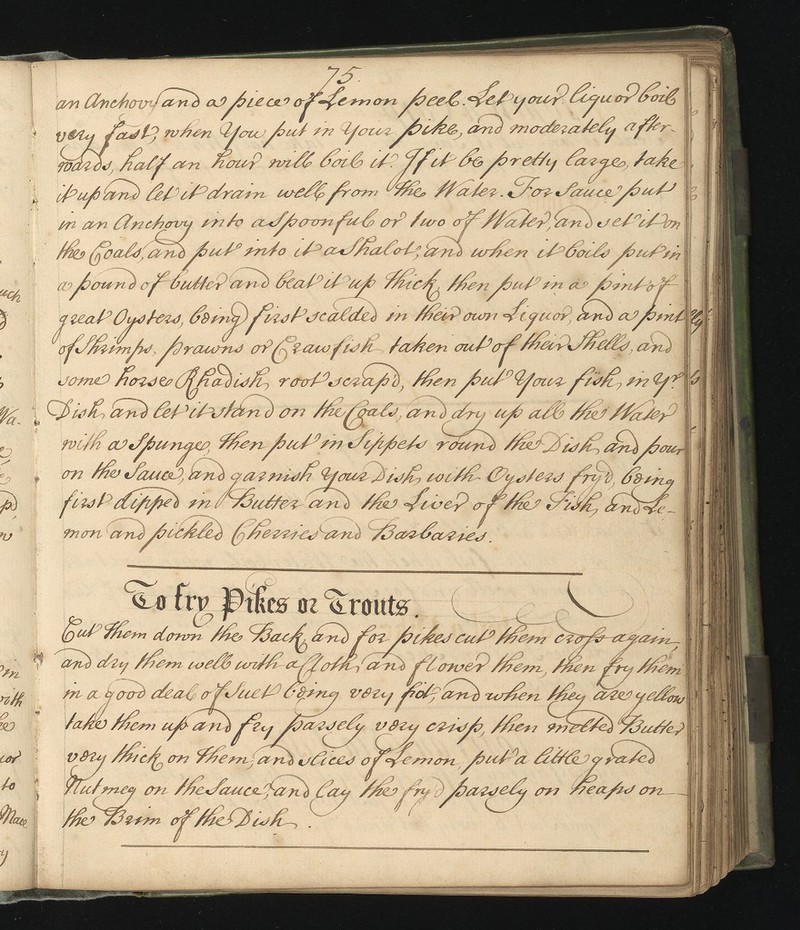 75.
an Anchovy and a piece of Lemon peel. Let your liquor boil
very fast, when You put in Your pike, and moderately after-
wards, half an hour will boil it. If it be pretty large, take
it up and let it drain well from the Water. For Sauce put
in an Anchovy into a Spoonful or two of Water, and set it on
the Coals, and put into it a Shalot, and when it boils put in
a pound of butter and beat it up thick, then put in a pint of
great Oysters, being first scalded in their own Liquor, and a pint
of Shrimps, prawns or Crawfish taken out of their Shells, and
some horse Rhadish root scrap'd, then put Your fish in Yr.
Dish and let it stand on the Coals, and dry up all the Water
with a Spunge, then put in Sippets round the Dish and pour
on the Sauce, and garnish Your Dish with Oysters fry'd, being
first dipped in Butter and the Liver of the Fish, and Le-
mon and pickled Cherries and Barbaries.
To fry Pikes or Trouts.
Cut them down the Back, and for pikes cut them cross again,
and dry them well with a Cloth, and flower them, then fry them
in a good deal of Suet being very hot, and when they are yellow
take them up and fry parsely very crisp, then melted Butter
very thick on them, and slices of Lemon, put a little grated
Nutmeg on the Sauce, and lay the fry'd parsely on heaps on
the Brim of the Dish.